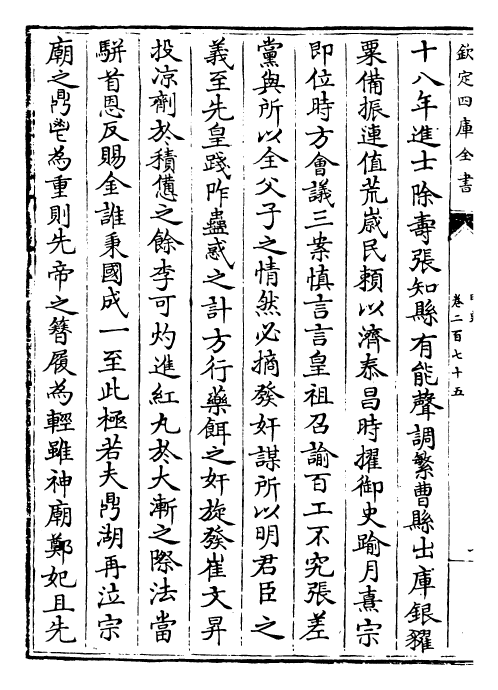 欽定四庫全書
明史
卷二百七十五
十八年進士除壽張知縣有能聲調繁曹縣出庫銀糴
粟備振連值荒歲民賴以濟泰昌時擢御史踰月熹宗
即位時方會議三案慎言言皇祖召諭百工不究張差
黨與所以全父子之情然必摘發奸謀所以明君臣之
義至先皇踐阼蠱惑之計方行藥餌之奸旋發崔文昇
投凉劑於積憊之餘李可灼進紅丸於大漸之際法當
駢首恩反賜金誰秉國成一至此極若夫鼎湖再泣宗
廟之鼎鬯為重則先帝之簪履為輕雖神廟鄭妃且先